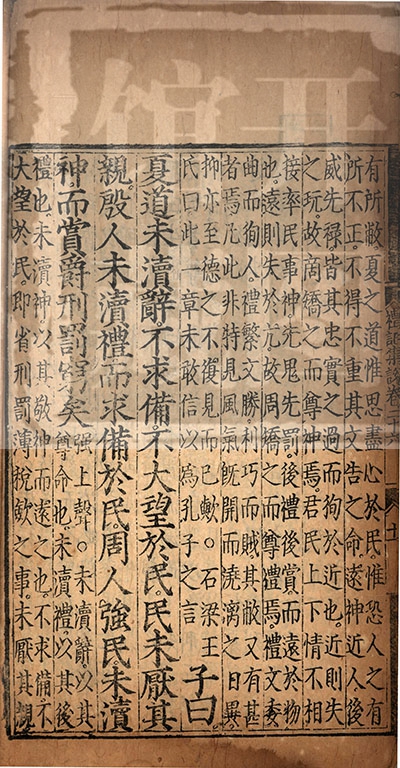 有所敝夏之道惟思盡心於民惟恐人之有
所不正不得不重其文告之命遠神近人後
威先祿皆其忠實之過而狥於近也近則失
之玩故商矯之而尊神焉君民上下情不相
接率民事神先鬼先罰後禮後賞而遠於物
也遠則失於亢故周矯之而尊禮焉禮文委
曲而狥人禮繁文勝利巧而賊其敝又有甚
者焉凡此非特見風氣旣開而澆漓之日異
抑亦至德之不復見而已歟○石梁王
氏曰此一章未敢信以爲孔子之言
子曰
夏道未瀆辭不求備不大望於民民未厭其
親殷人未瀆禮而求備於民周人強民未瀆
神而賞爵刑罰窮矣
強上聲○未瀆辭以其
尊命也未瀆禮以其後
禮也未瀆神以其敬神而遠之也不求備不
大望於民即省刑罰薄稅斂之事未厭其親
禮記集說卷二十六
十